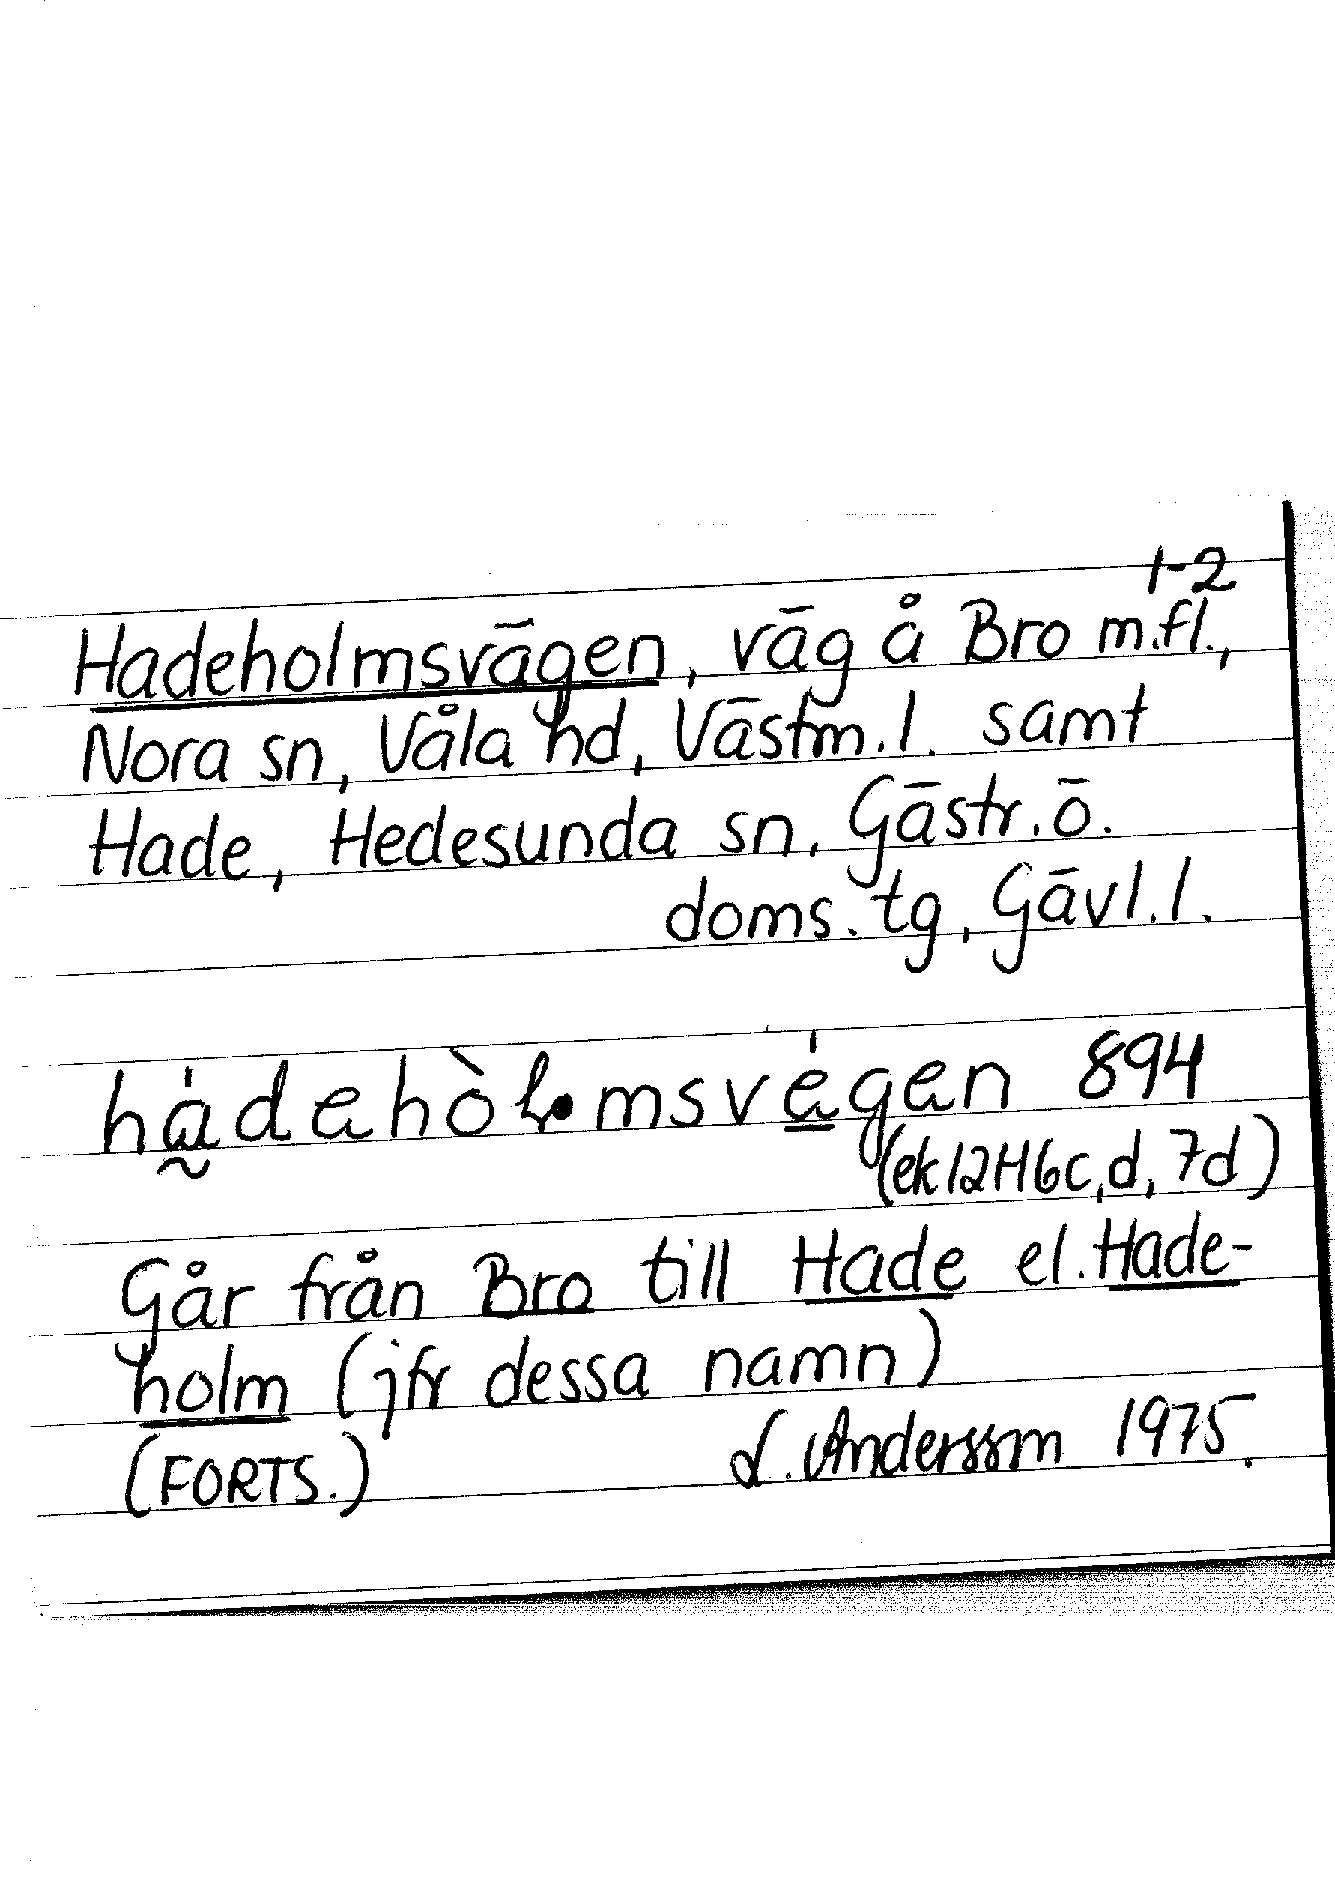 1-2
Hadeholmsvägen, väg å Bro m.fl.,
Nora sn, Våla hd, Västm.l. samt
Hade, Hedesunda sn, Gästr. ö.
doms. tg, Gävl.l.
894
(ek 12H6c,d, 7d)
Går från Bro till Hade el. Hade-
holm (jfr dessa namn)
(FORTS.) L. Andersson 1975.